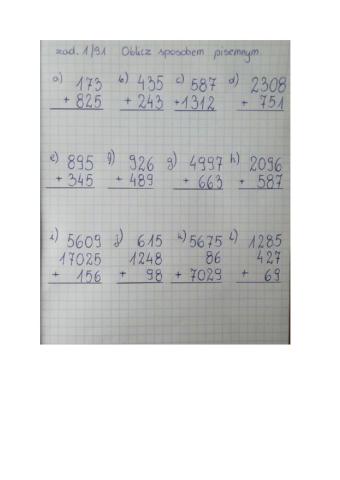 zad. 1/91 Oblicz sposobem pisemnym.
a) 173 b) 435 c) 587 d) 2308
+ 825 + 243 +1312 + 751
e) 895 f) 926 g) 4997 h) 2096
+ 345 + 489 + 663 + 587
i) 5609 j) 615 k) 5675 l) 1285
17025 1248 86 427
+ 156 + 98 + 7029 + 69